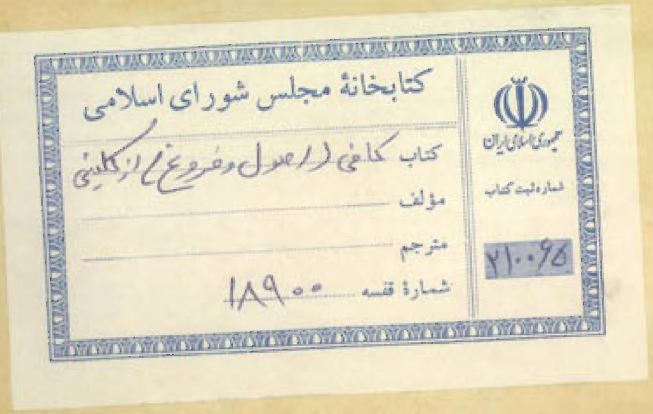 کتابخانهٔ مجلس شورای اسلامی
کتاب کافی (از اصول و فروع) از کلینی
مؤلف
مترجم
شمارهٔ قفسه ۱۸۹۰۰
جمهوری اسلامی ایران
شماره ثبت کتاب
۲۱۰۰۶۵